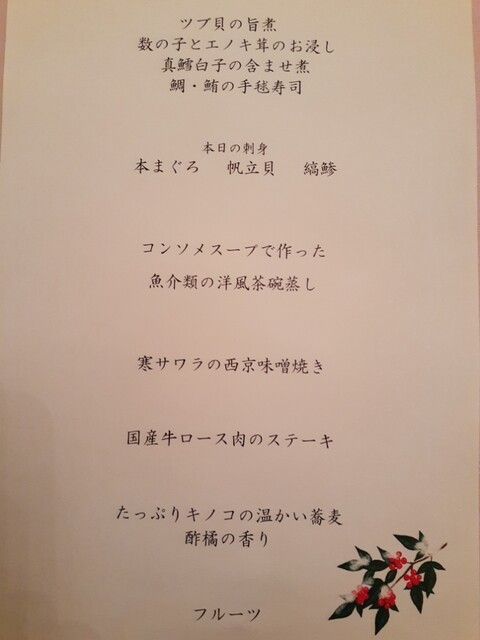 ツブ貝の旨煮
数の子とエノキ茸のお浸し
真鱈白子の含ませ煮
鯛・鮪の手毬寿司
本日の刺身
本まぐろ 帆立貝 縞鯵
コンソメスープで作った
魚介類の洋風茶碗蒸し
寒サワラの西京味噌焼き
国産牛ロース肉のステーキ
たっぷりキノコの温かい蕎麦
酢橘の香り
フルーツ